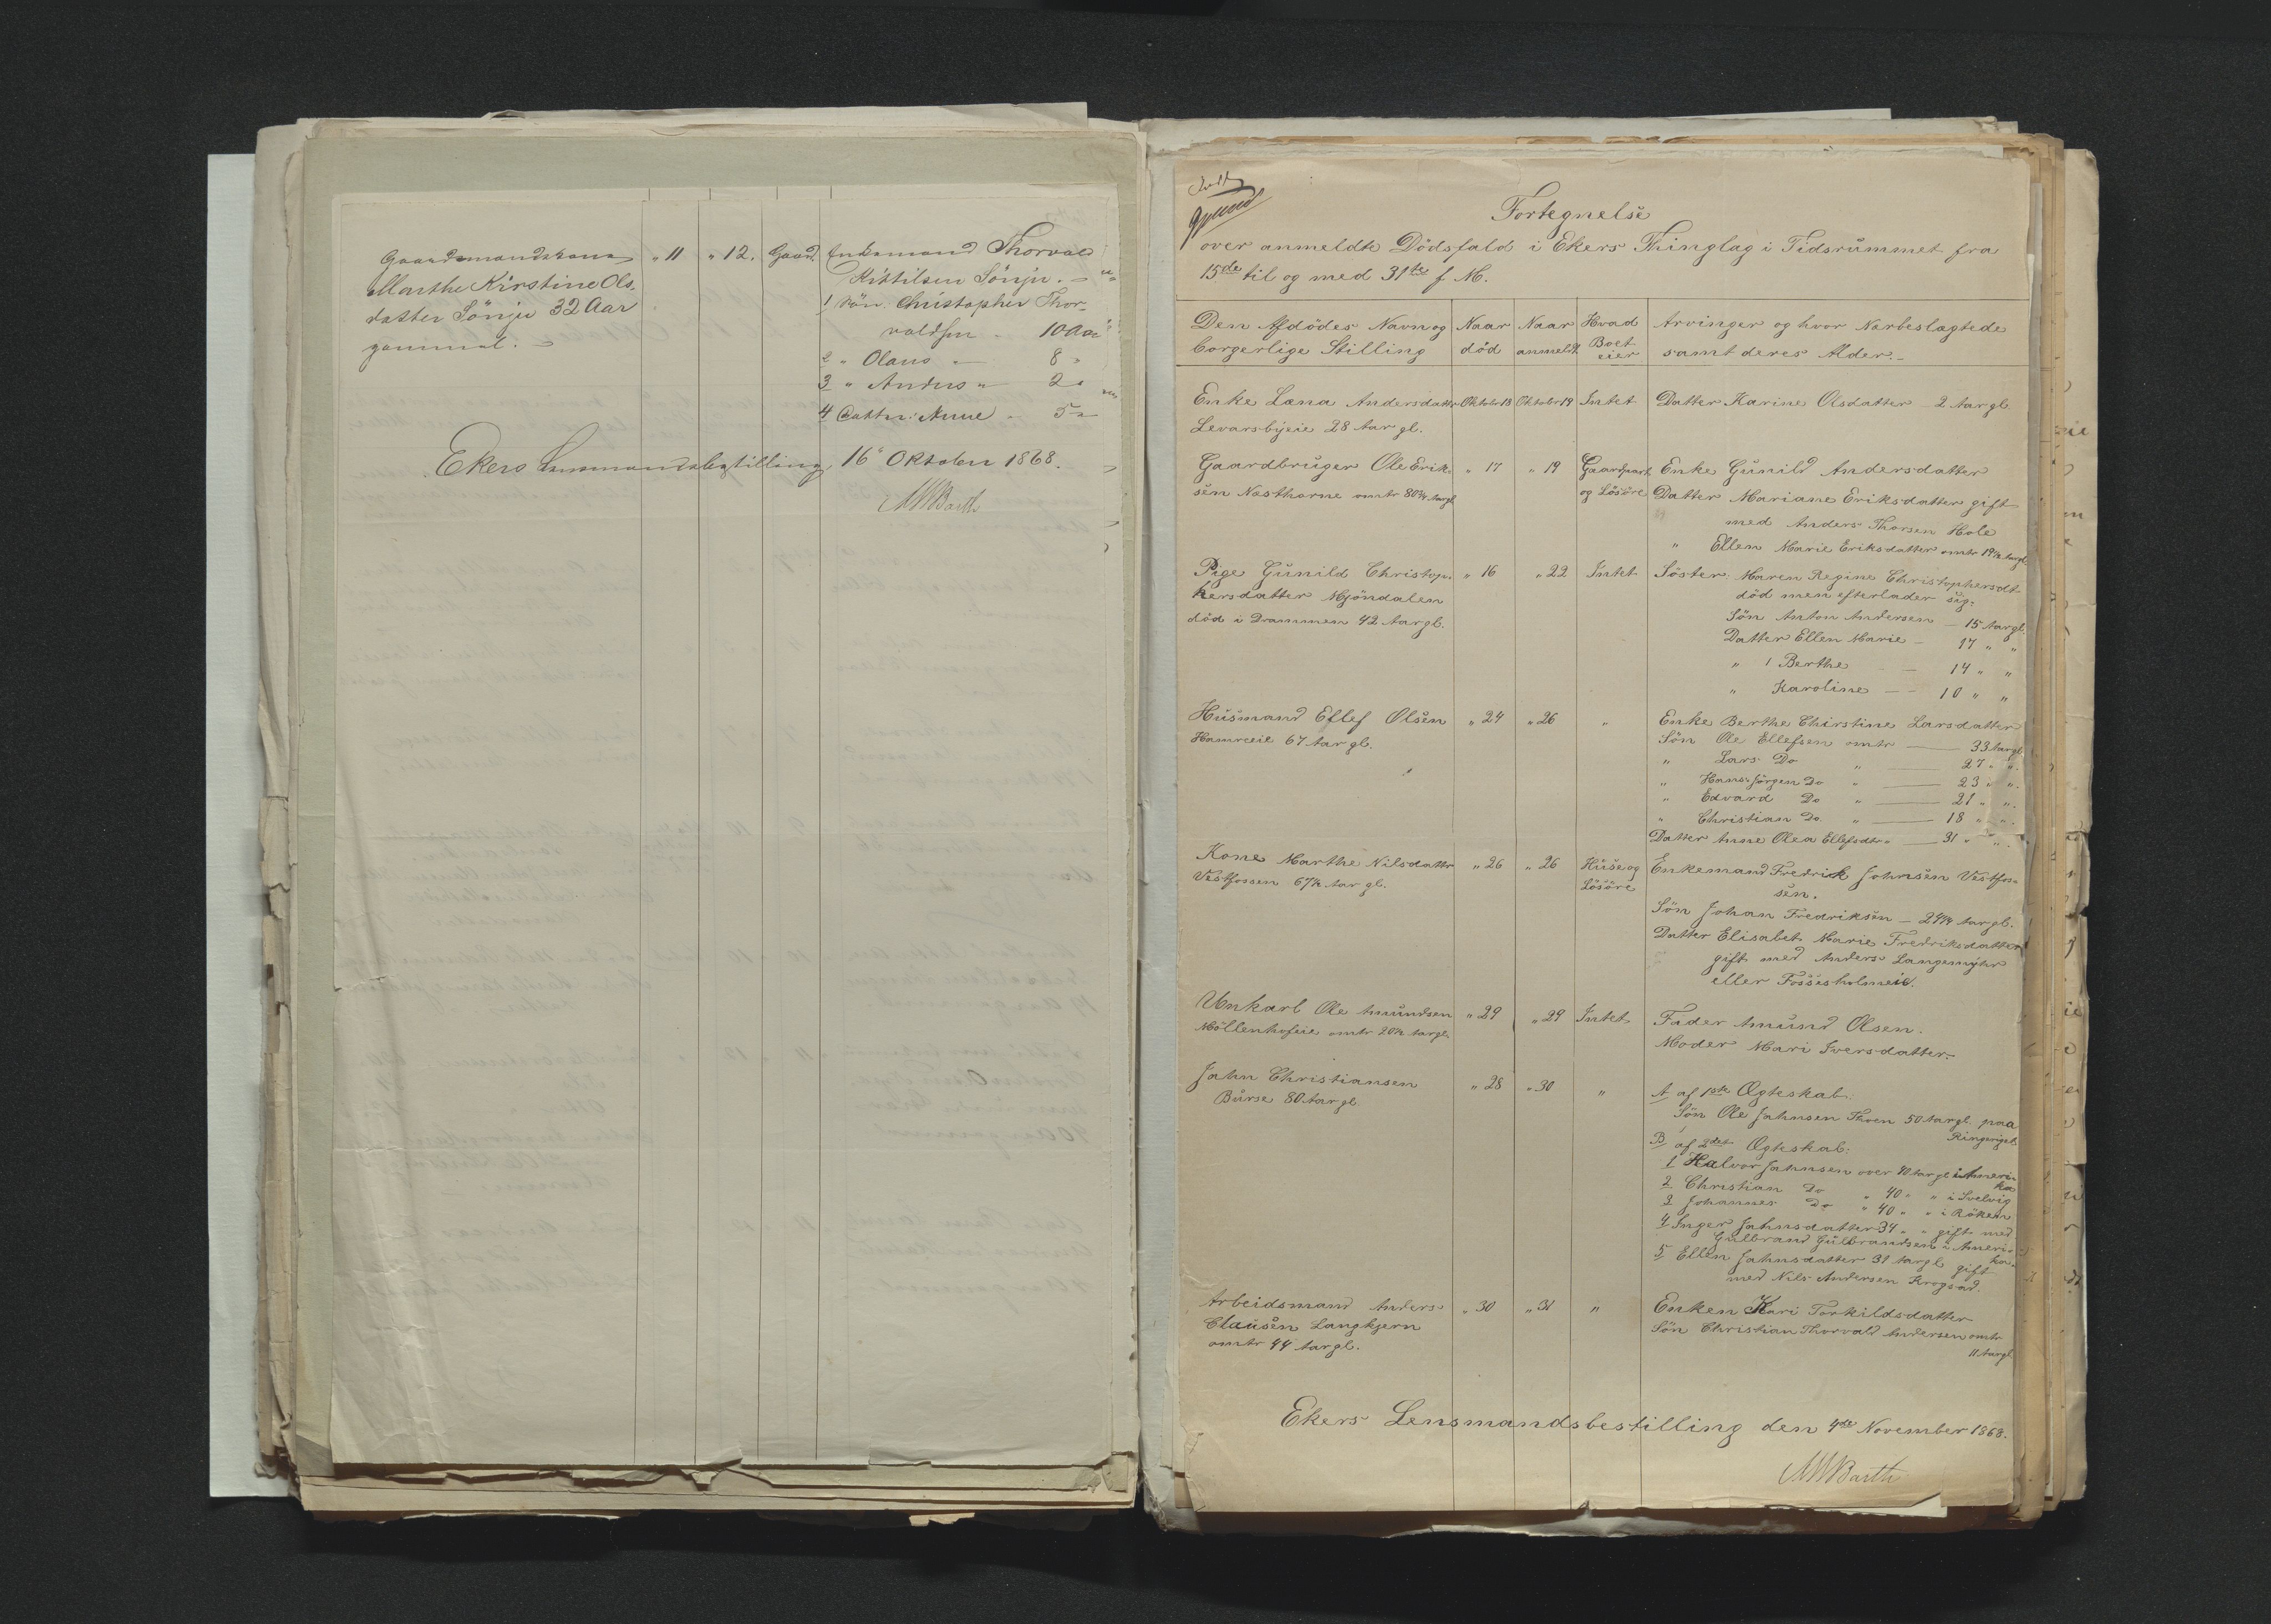 Gaardmandskone " 11 " 12. Gaard. Enkemand Thorvald
Marthe Kirstine Ols- Kittilsen Sönju.
datter Sönju 32 Aar 1 Sön Christopher Thor-
gammel. valdsen - 10 Aar
2 " Olaus - 8 "
3 " Anders " 2 "
4 Datter: Anne - 5 "
Ekers Lensmandsbestilling, 16 Oktober 1868.
MWBarth
Fortegnelse
over anmeldte Dödsfald i Ekers Thinglag i Tidsrummet fra
15de til og med 31te f. M.
Den Afdödes Navn og borgerlige Stilling
Naar död
Naar anmeldt
Hvad Boet eier
Arvinger og hvor Nærbeslægtede samt deres Alder.
Enke Lena Andersdatter Oktober 18 Oktober 19 Intet Datter Karine Olsdatter 2 Aar gl.
Levarsbyeie 28 Aar gl.
Gaardbruger Ole Erik- " 17 " 19 Gaardpart Enke Gunild Andersdatter
sen Næsthorne omtr 80 3/4 Aar gl og Lösöre Datter Mariane Eriksdatter gift
med Anders Thorsen Hole
" Ellen Marie Eriksdatter omtr 19 1/2 Aar gl.
Pige Gunild Christop- " 16 " 22 Intet Söster: Maren Regine Christophersdt.
hersdatter Mjöndalen död men efterlader sig:
död i Drammen 42 Aar gl. Sön Anton Andersen - 15 Aar gl.
Datter Ellen Marie - 17 " "
" 1 Berthe - 14 " "
" Karoline - 10 " "
Husmand Ellef Olsen " 24 " 26 " Enke Berthe Chirstine Larsdatter
Hamreeie 67 Aar gl. Sön Ole Ellefsen omtr - 33 Aar gl
" Lars Do " - 27 " ".
" Hans Jörgen Do " - 23 " ".
" Edvard Do " - 21 " ".
" Christian Do. " - 18 " ".
Datter Anne Olea Ellefsdtr " - 31 " ".
Kone Marthe Nilsdatter " 26 " 26 Huse og Enkemand Fredrick Johnsen Vestfos-
Vestfossen 67 1/2 Aar gl. Lösöre sen.
Sön Johan Fredriksen - 24 3/4 Aar gl.
Datter Elisabet Marie Fredriksdatter
gift med Anders Langemyhr
eller Fossesholmeie.
Unkarl Ole Amundsen " 29 " 29 Intet Fader Amund Olsen.
Möllenhofeie omtr 20 1/2 Aar gl. Moder Mari Iversdatter.
Jahn Christiansen " 28 " 30 " A af 1ste Ægteskab.
Burse 80 Aar gl Sön Ole Jahnsen Thoen 50 Aar gl. paa
Ringerige.
B af 2det Ægteskab:
1 Halvor Jahnsen over 40 Aar gl i Ameri-
ka
2 Christian Do " 40 " " i Svelvig
3 Johannes Do " 40 " " i Röken
4 Inger Jahnsdatter 34 " " gift med
Gulbrand Gulbrandsen i Ameri-
ka.
5 Ellen Jahnsdatter 31 Aar gl gift
med Nils Andersen Krogsrd.
Arbeidsmand Anders " 30 " 31 " Enken Kari Torkildsdatter
Clausen Langkjern Sön Christian Thorvald Andersen omtr
omtr 44 Aar gl. 11 Aar gl
Ekers Lensmandsbestilling den 4de November 1868.
MWBarth